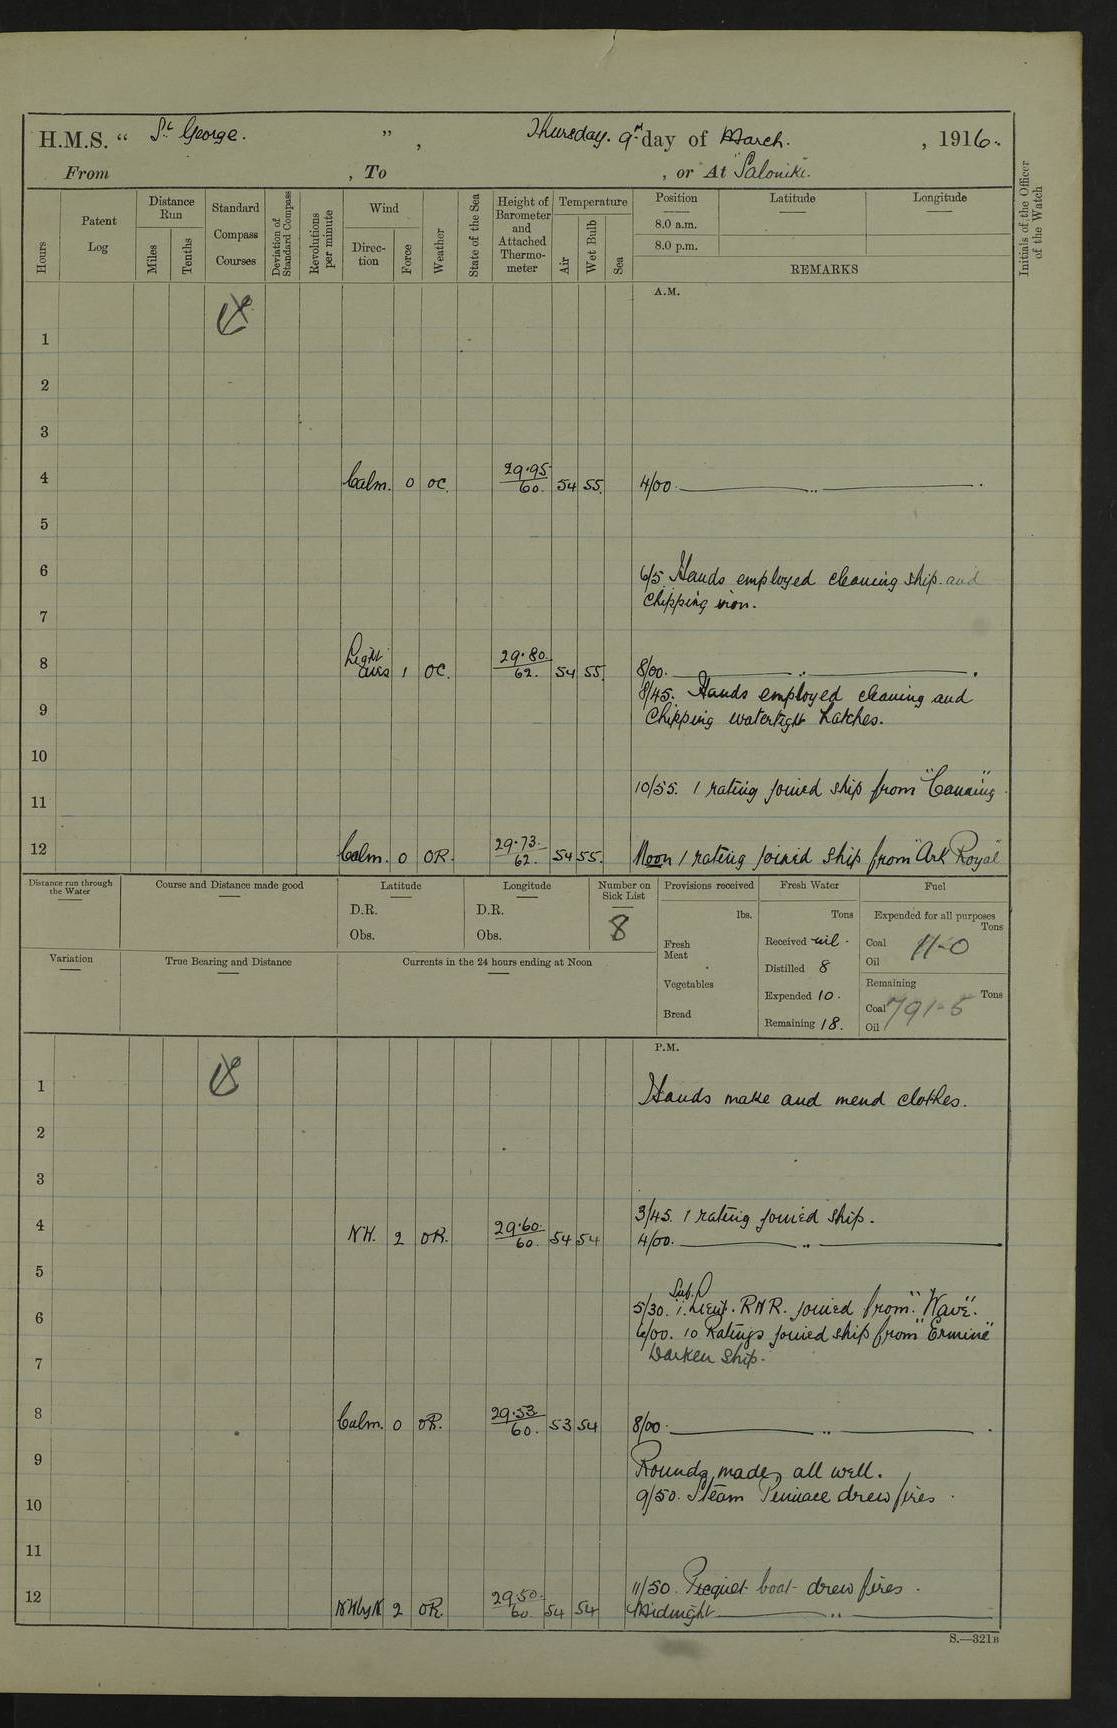 H.M.S. “ St George. ” , Thursday. 9th day of March. , 1916.
From , To , or At Saloniki.
Hours
Patent Log
Distance Run
Miles
Tenths
Standard Compass Courses
Deviation of Standard Compass
Revolutions per minute
Wind
Direction
Force
Weather
State of the Sea
Height of Barometer and Attached Thermometer
Temperature
Air
Wet Bulb
Sea
Position Latitude Longitude
8.0 a.m.
8.0 p.m.
REMARKS
Initials of the Officer of the Watch
A.M.
1
2
3
4 Calm. 0 OC. 29.95 60. 54 55. 4/00. ..
5
6 6/5. Hands employed cleaning ship and
chipping iron.
7
8 Light airs 1 OC. 29.80. 62. 54 55. 8/00. ..
8/45. Hands employed cleaning and
9 Chipping watertight hatches.
10
10/55. 1 rating joined ship from "Canning"
11
12 Calm. 0 OR. 29.73. 62. 54 55. Noon 1 rating joined ship from "Ark Royal"
Distance run through the Water
Course and Distance made good
Latitude
D.R.
Obs.
Longitude
D.R.
Obs.
Number on Sick List
8
Provisions received
lbs.
Fresh Meat
Vegetables
Bread
Fresh Water
Tons
Received nil.
Distilled 8
Expended 10.
Remaining 18.
Fuel
Expended for all purposes
Tons
Coal 11-0
Oil
Remaining
Tons
Coal 791-5
Oil
Variation
True Bearing and Distance
Currents in the 24 hours ending at Noon
P.M.
1 Hands make and mend clothes.
2
3
3/45. 1 rating joined ship.
4 NW. 2 OR. 29.60. 60. 54 54 4/00. ..
5
Sub.
5/30. 1. Lieut. RNR. joined from "Wave".
6 6/00. 10 Ratings joined ship from "Ermine"
7 Darken ship.
8 Calm. 0 OR. 29.53 60. 53 54 8/00. ..
9 Rounds made, all well.
10 9/50. Steam Pinnace drew fires.
11
11/50. Picquet boat drew fires.
12 NWbyN 2 OR. 29.50. 60. 54 54 Midnight ..
S.—321B